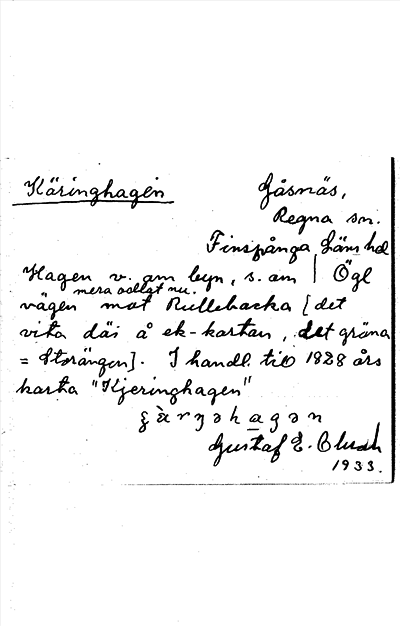 Käringhagen
Gåsnäs,
Regna sn.
Finspånga Läns hd
Hagen v. om byn, s. om | Ögl
mera odlgt nu.
vägen mot Rullebacka [det
vita där å ek-kartan, det gröna
= Storängen]. I handl. till 1828 års
karta "Kjeringhagen"
Gustaf E.
1933.